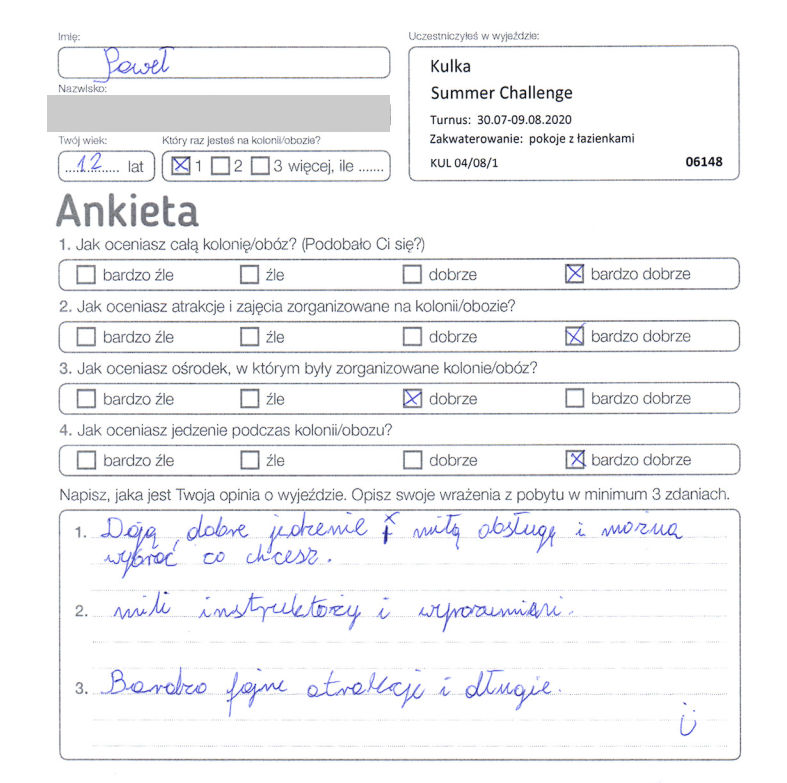 Imię:
Paweł
Nazwisko:
Twój wiek:
12 lat
Który raz jesteś na kolonii/obozie?
1 2 3 więcej, ile .......
Uczestniczyłeś w wyjeździe:
Kulka
Summer Challenge
Turnus: 30.07-09.08.2020
Zakwaterowanie: pokoje z łazienkami
KUL 04/08/1 06148
Ankieta
1. Jak oceniasz całą kolonię/obóz? (Podobało Ci się?)
bardzo źle źle dobrze bardzo dobrze
2. Jak oceniasz atrakcje i zajęcia zorganizowane na kolonii/obozie?
bardzo źle źle dobrze bardzo dobrze
3. Jak oceniasz ośrodek, w którym były zorganizowane kolonie/obóz?
bardzo źle źle dobrze bardzo dobrze
4. Jak oceniasz jedzenie podczas kolonii/obozu?
bardzo źle źle dobrze bardzo dobrze
Napisz, jaka jest Twoja opinia o wyjeździe. Opisz swoje wrażenia z pobytu w minimum 3 zdaniach.
1. Dają dobre jedzenie miłą obsługę i można
wybrać co chcesz.
2. mili instruktoży i wyrozumiali.
3. Bardzo fajne atrakcje i długie.